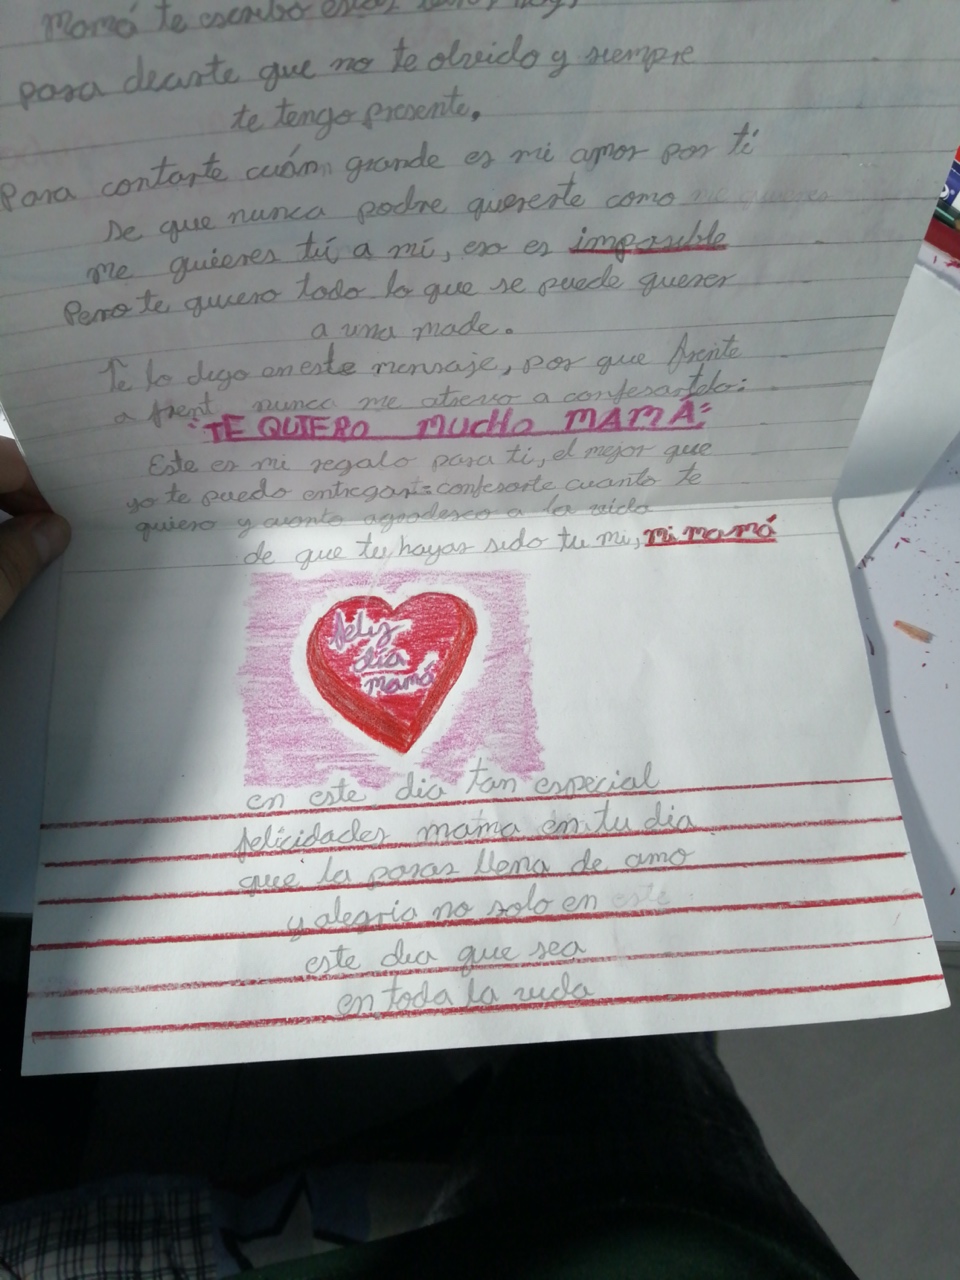 Mamá te escribo estas
para decirte que no te olvido y siempre
te tengo presente.
Para contarte cuán grande es mi amor por ti
se que nunca podre quererte como me quieres
me quieres tú a mí, eso es imposible
Pero te quiero todo lo que se puede querer
a una made.
Te lo digo en este mensaje, por que frente
a frent nunca me atrevo a confesartelo:
"TE QUIERO MUCHO MAMÁ"
Este es mi regalo para ti, el mejor que
yo te puedo entregar: confesarte cuanto te
quiero y cuanto agradesco a la vida
de que tu hayas sido tu mi, mi mamá
feliz
día
mamá
en este dia tan especial
felicidades mama en tu dia
que la pasas llena de amo
y alegria no solo en este
este dia que sea
en toda la vida